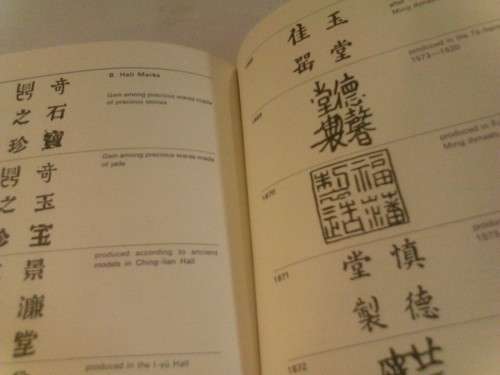 B. Hall Marks
奇石寶
之珍
Gem among precious wares made
of precious stones
奇玉
之珍
Gem among precious wares made
of jade
景濂堂
produced according to ancient
models in Ching-lien Hall
produced in the I-yü Hall
玉堂
佳器
Ming dynasty
produced in the
1573—1620
德馨堂
produced in
Ming dynasty
1870
福藩
製造
1871
慎德
堂製
1872